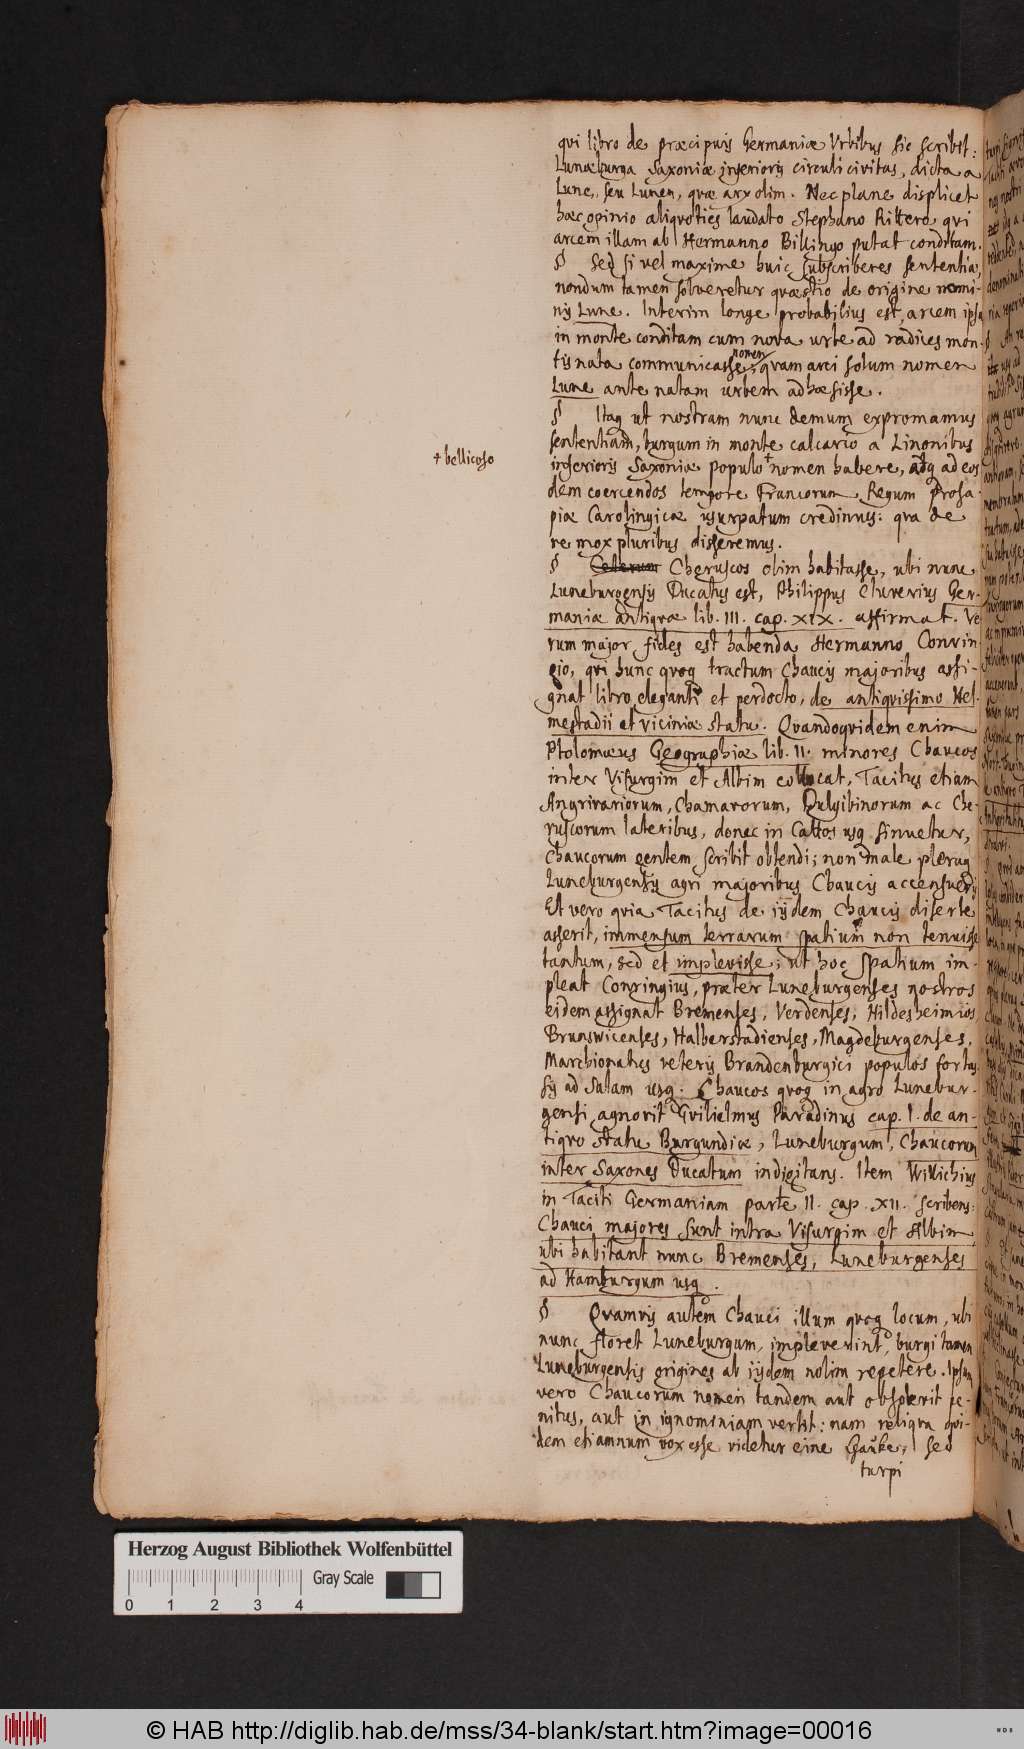 qvi libro de præcipuis Germaniæ Urbibus sic scribit:
Lunæburga Saxoniæ inferioris circuli civitas, dicta a
Lune, seu Lunen, qvæ arx olim. Nec plane displicet
hæc opinio aliqvoties laudato Stephano Rittero qvi
arcem illam ab Hermanno Billingo putat conditam.
§ Sed si vel maxime huic subscriberes sententiæ,
nondum tamen solveretur qvæstio de origine nomi-
nis Lune. Interim longe probabilius est, arcem ipsa
in monte conditam cum nova urbe ad radices mon-
tis nata communicasse nomen, qvam arci solum nomen
Lune ante natam urbem adhæsisse.
§ Itaq ut nostram nunc demum expromamus
sententiam, burgum in monte calcario a Linonibus
+ bellicoso
inferioris Saxoniæ populo + nomen habere, adq ad eos
dem coercendos tempore Francorum Regum Prosa-
piæ Carolingicæ usurpatum credimus: qva de
re mox pluribus disseremus.
§ Ceterum Cheruscos olim habitasse, ubi nunc
Luneburgensis Ducatus est, Philippus Cluverius Ger-
maniæ antiqvæ lib. III. cap. XIX. affirmat. Ve
rum major fides est habenda Hermanno Conrin
gio, qvi hunc qvoq tractum Chaucis majoribus assi-
gnat libro eleganti et perdocto, de antiqvissimo Hel-
mestadii et viciniæ statu. Qvandoqvidem enim
Ptolomæus Geographiæ lib. II. minores Chaucos
inter Visurgim et Albim collocat, Tacitus etiam
Angrivariorum, Chamavorum, Dulgibinorum ac Che-
ruscorum lateribus, donec in Cattos usq sinuetur,
Chaucorum gentem scribit obtendi; non male pleraq
Luneburgensis agri majoribus Chaucis accensueris
Et vero qvia Tacitus de iisdem Chaucis diserte
asserit, immensum terrarum spatium non tenuisse
tantum, sed et implevisse; ut hoc spatium im-
pleat Conringius, præter Luneburgenses nostros
eidem assignat Bremenses, Verdenses, Hildesheimios
Brunsvicenses, Halberstadienses, Magdeburgenses,
Marchionatus veteris Brandenburgici populos fortas-
sis ad Salam usq. Chaucos qvoq in agro Lunebur-
gensi agnovit Gvilielmus Paradinus cap. I. de an-
tiqvo statu Burgundiæ, Luneburgum, Chaucorum
inter Saxones Ducatum indigitans. Item Willichius
in Taciti Germaniam parte II. cap. XII. scribens:
Chauci majores sunt intra Visurgim et Albim,
ubi habitant nunc Bremenses, Luneburgenses
ad Hamburgum usq.
§ Qvamvis autem Chauci illum qvoq locum, ubi
nunc floret Luneburgum, impleverint, burgi tamen
Luneburgensis origines ab iisdem nolim repetere. Ipsum
vero Chaucorum nomen tandem aut obsolevit pe-
nitus, aut in ignominiam vertit: nam reliqva qvi-
dem etiamnum vox esse videtur eine Gauke, sed
turpi
Herzog August Bibliothek Wolfenbüttel
Gray Scale
0 1 2 3 4
© HAB http://diglib.hab.de/mss/34-blank/start.htm?image=00016